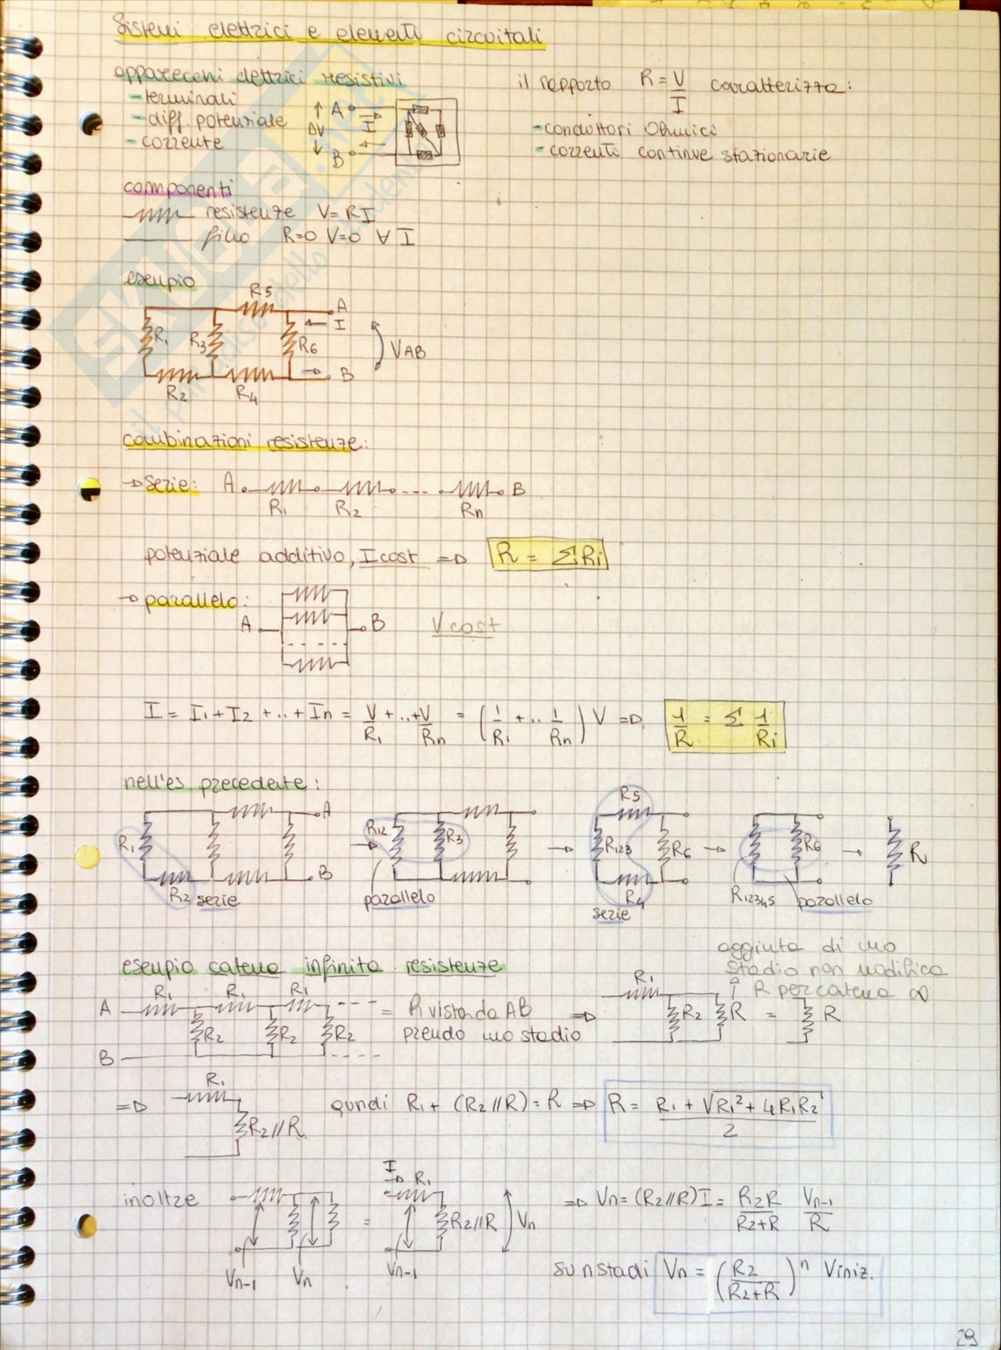 Sistemi elettrici e elementi circuitali
apparecchi elettrici resistivi
- terminali
- diff. potenziale
- corrente
ΔV A I B
il rapporto R = V/I caratterizza:
- conduttori Ohmici
- correnti continue stazionarie
componenti
resistenze V=RI
filo R=0 V=0 ∀ I
esempio
R5 A
R1 R3 I R6 VAB
R2 R4 B
combinazioni resistenze:
→ serie: A B
R1 R2 ... Rn
potenziale additivo, I cost ⇒ R = ΣRi
→ parallelo:
A B V cost
I = I1+I2+..+In = V/R1 +..+ V/Rn = (1/R1 +.. 1/Rn) V ⇒ 1/R = Σ 1/Ri
nell'es precedente:
R1 A B R2 serie
→ R12 R3 parallelo
→ R5 R123 R6 R4 serie
→ R12345 R6 parallelo
→ R
esempio catena infinita resistenze
A R1 R1 R1
R2 R2 R2
B
= R vista da AB
prendo uno stadio
⇒ R1 R2 R = R
aggiunta di uno
stadio non modifica
R per catena ∞
⇒ R1 R2//R
quindi R1 + (R2//R) = R ⇒ R = (R1 + √(R1² + 4R1R2))/2
inoltre
Vn-1 Vn
= I R1 R2//R Vn
Vn-1
⇒ Vn = (R2//R) I = R2R/(R2+R) Vn-1/R
su n stadi Vn = (R2/(R2+R))^n Viniz.
29